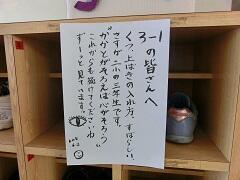 3-1の皆さんへ
くつ、上ばきの入れ方、すばらしい。
さすが二小の三年生です。
"かかとがそろえば心がそろう"
これからも続けてくださいね
ずーっと見ています。